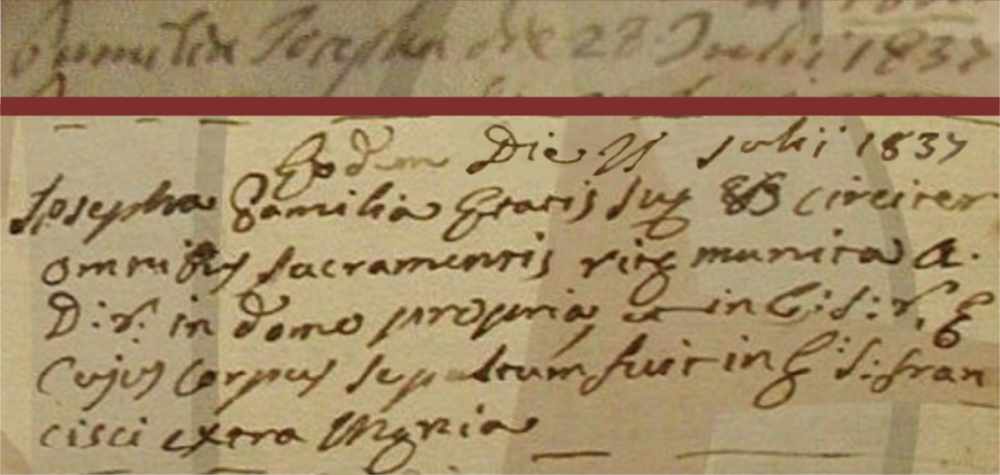 Familia Josepha die 27 Julii 1837
Eodem Die 27 Julii 1837
Josepha Familia Etatis suę 83 circiter
omnibus sacramentis ritę munita A.
D: r: in domo propria et in C: S: r: E
Cujus Corpus sepultum fuit in E: S: Fran
cisci extra Męnia